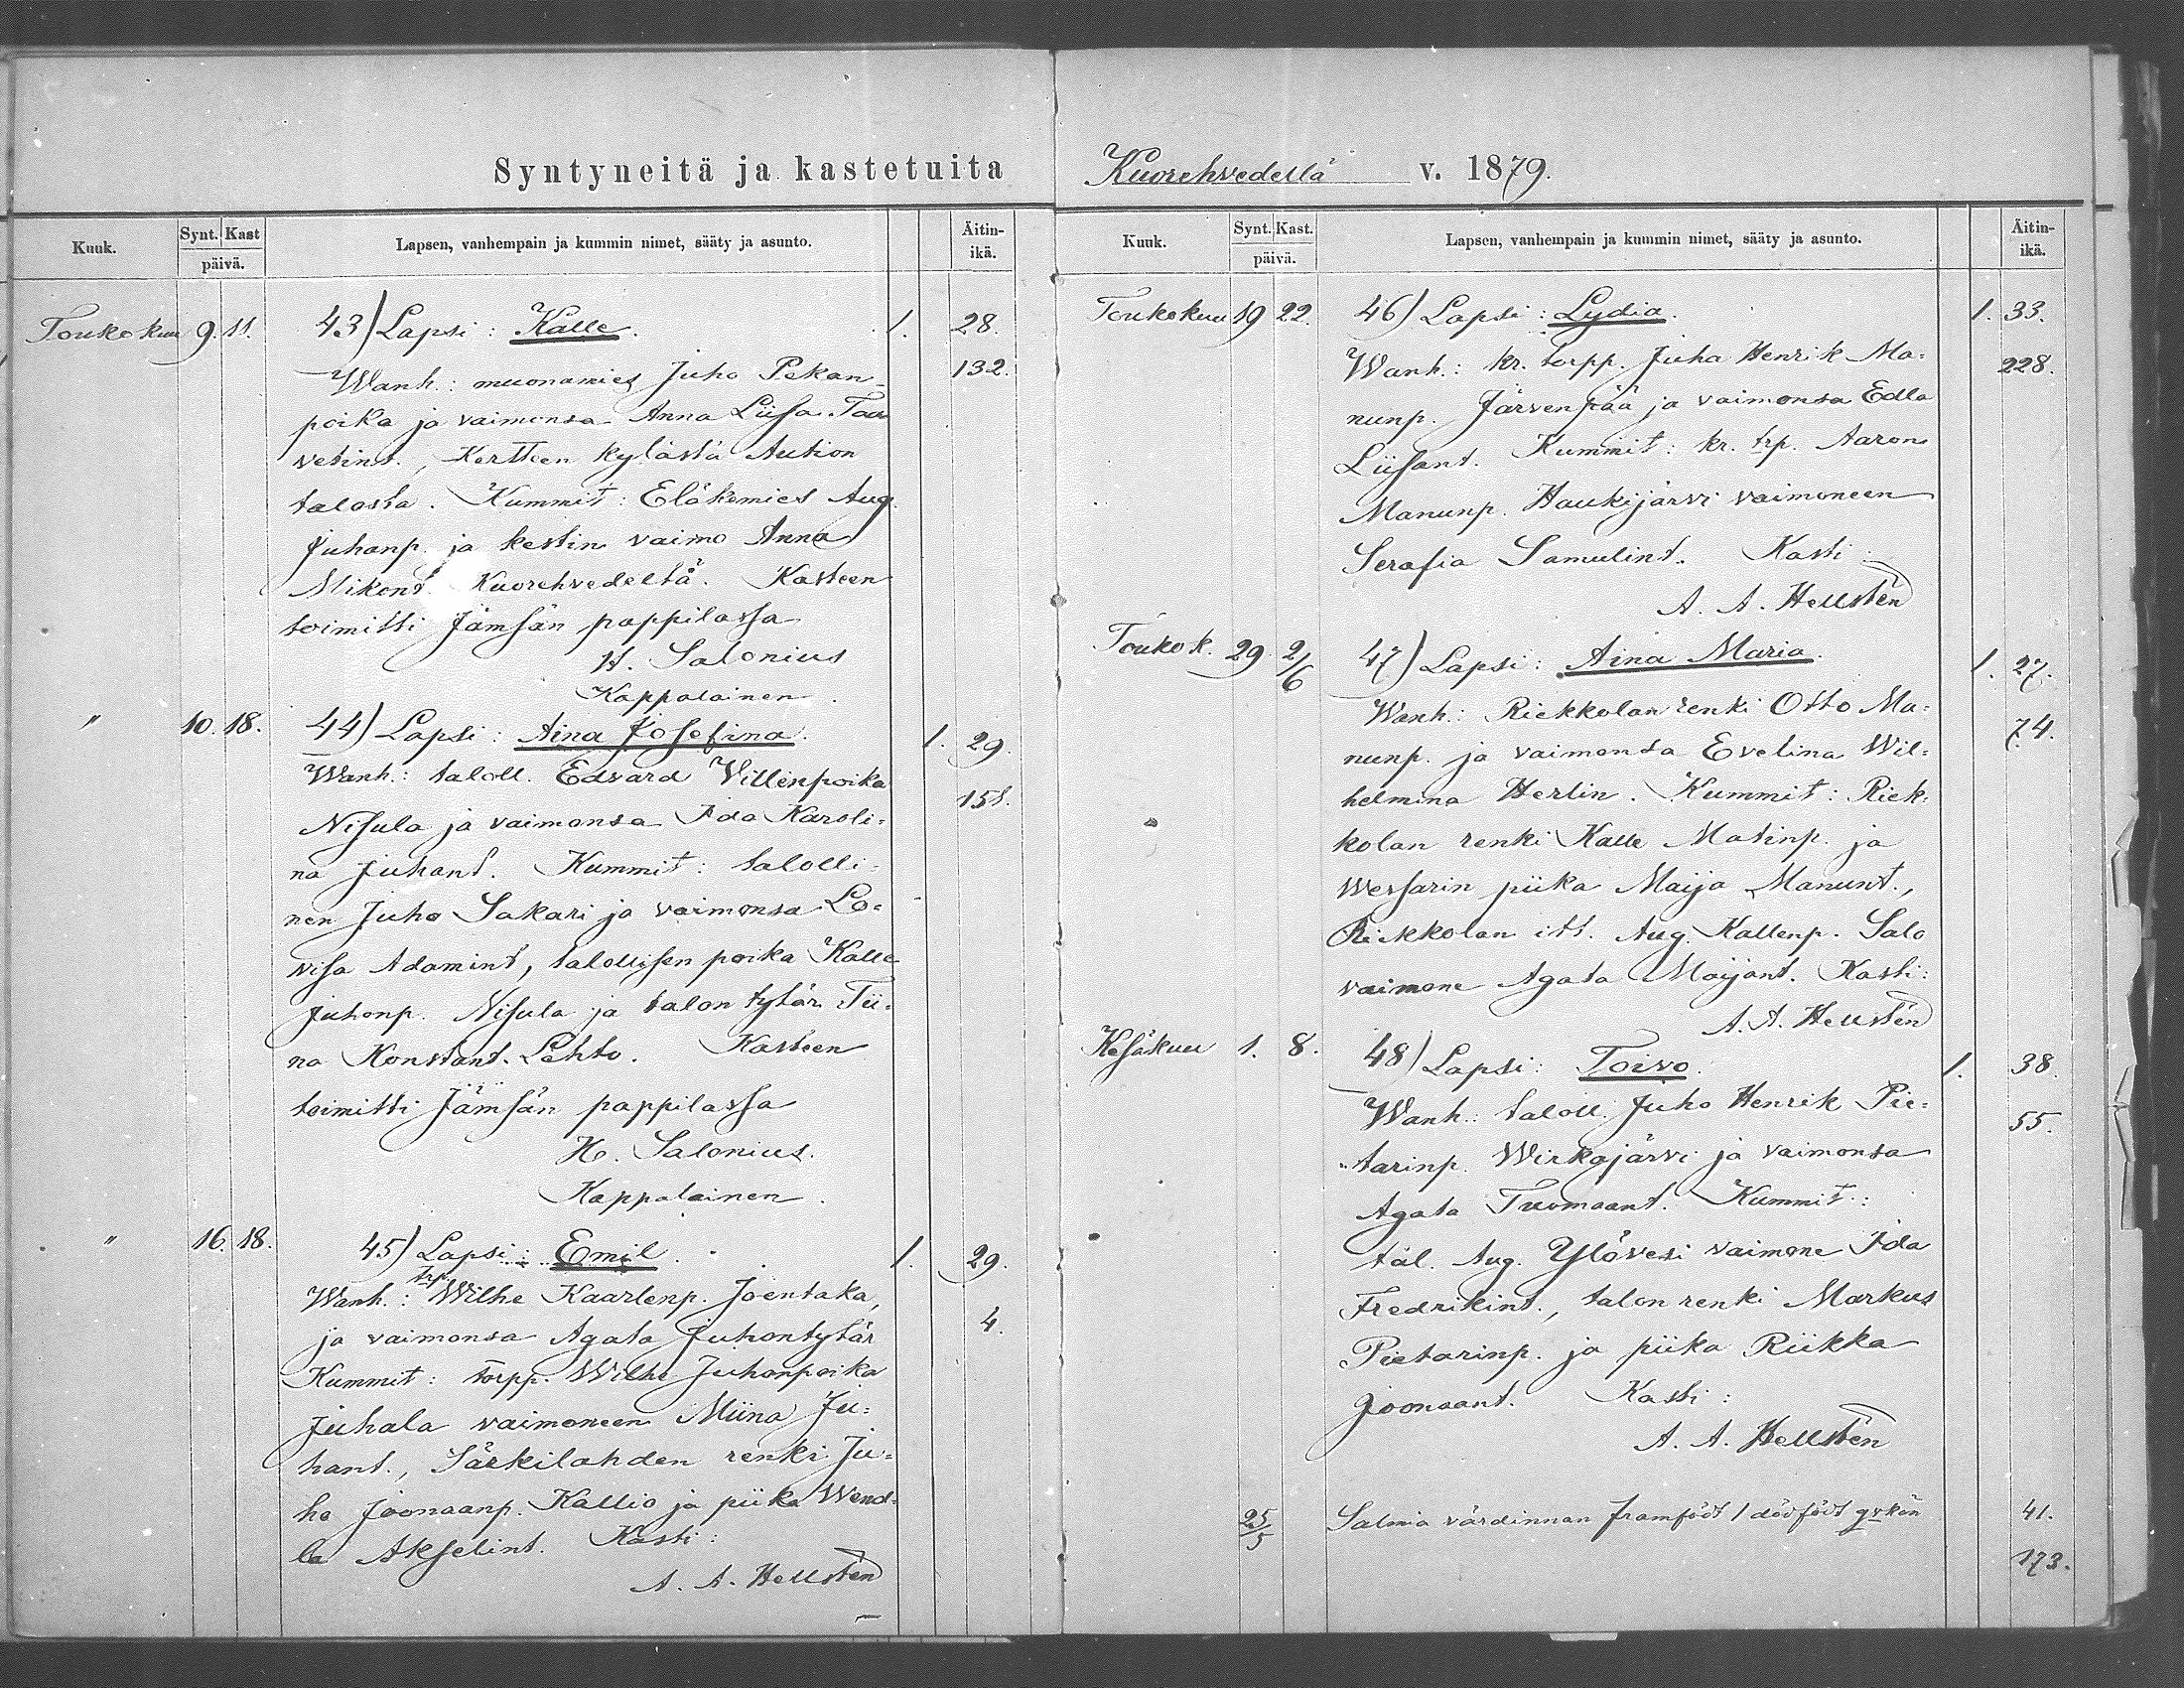 Syntyneitä ja kastetuita
Kuuk.
Synt. Kast
päivä.
Lapsen, vanhempain ja kummin nimet, sääty ja asunto.
Äitin-
ikä.
Toukokuu 9. 11. 43) Lapsi: Kalle. 1. 28.
Wanh.: muonamies Juho Pekan- 132.
poika ja vaimonsa Anna Liisa Taa
vetint., Kertteen kylästä Aution
talosta. Kummit: Eläkemies Aug.
Juhanp. ja kestin vaimo Anna
Mikont. Kuorehvedeltä. Kasteen
toimitti Jämsän pappilassa
H. Salonius
Kappalainen.
" 10. 18. 44) Lapsi: Aina Josefina. 1. 29.
Wanh.: taloll. Edvard Villenpoika 151.
Nisula ja vaimonsa Ida Karoli=
na Juhant. Kummit: talolli=
nen Juho Sakari ja vaimonsa Lo=
visa Adamint, talollisen poika Kalle
Juhonp. Nisula ja talon tytär Tii=
na Konstant. Lehto. Kasteen
toimitti Jämsän pappilassa
H. Salonius.
Kappalainen.
" 16. 18. 45) Lapsi: Emil. 1. 29.
Wanh.: trp. Wilhe Kaarlenp. Joentaka, 4.
ja vaimonsa Agata Juhontytär
Kummit: torpp. Wilhe Juhonpoika
Juhala vaimoneen Miina Ju=
hant., Särkilahden renki Ju=
ho Joonaanp. Kallio ja piika Wend=
la Akselint. Kasti:
A. A. Hellstén
Kuorehvedellä v. 1879.
Kuuk.
Synt. Kast.
päivä.
Lapsen, vanhempain ja kummin nimet, sääty ja asunto.
Äitin-
ikä.
Toukokuu 19 22. 46) Lapsi: Lydia. 1. 33.
Wanh.: kr. torpp. Juha Henrik Ma= 228.
nunp. Järvenpää ja vaimonsa Edla
Liisant. Kummit: kr. trp. Aaron
Manunp. Haukijärvi vaimoneen
Serafia Samulint. Kasti:
A. A. Hellstén
Toukok. 29. 2/6 47) Lapsi: Aina Maria. 1. 27.
Wanh.: Riekkolan renki Otto Ma= 74.
nunp. ja vaimonsa Evelina Wil=
helmina Herlin. Kummit: Riek=
kolan renki Kalle Matinp. ja
Wessarin piika Maija Manunt.,
Riekkolan itt. Aug. Kallenp. Salo
vaimone Agata Maijant. Kasti:
A. A. Hellstén
Kesäkuu 1. 8. 48) Lapsi: Toivo. 1. 38.
Wanh.: taloll. Juho Henrik Pie= 55.
tarinp. Wirkajärvi ja vaimonsa
Agata Tuomaant. Kummit:
tal. Aug. Ylövesi vaimone Ida
Fredrikint., talon renki Markus
Pietarinp. ja piika Riikka
Joonaant. Kasti:
A. A. Hellstén
25/5 Salmia värdinnan framfödt 1 dödfödt qvkön 41.
173.